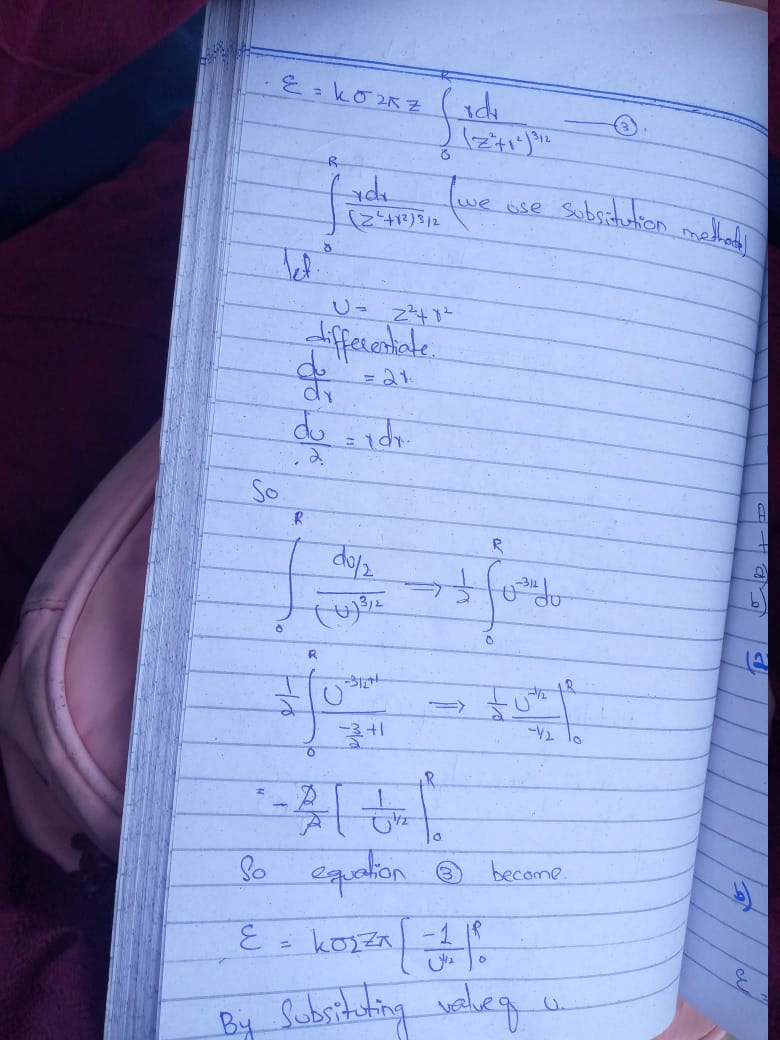 ε = kσ2πz ∫₀ᴿ rdr/(z²+r²)^3/2 —— ③.
∫₀ᴿ rdr/(z²+r²)^3/2 (we use subsitution method)
let.
U = z²+r²
differentiate.
du/dr = 2r.
du/2 = rdr.
So
∫₀ᴿ (du/2)/(U)^3/2 ⇒ 1/2 ∫₀ᴿ U^-3/2 du
1/2 ∫₀ᴿ U^(-3/2+1)/(-3/2+1) ⇒ 1/2 U^-1/2/(-1/2) |₀ᴿ
= -2/2 [ 1/U^1/2 |₀ᴿ
So equation ③ become.
ε = kσ2zπ [ -1/U^1/2 |₀ᴿ
By Subsituting value of u.
A
2)
b)
(2
b)
ε =